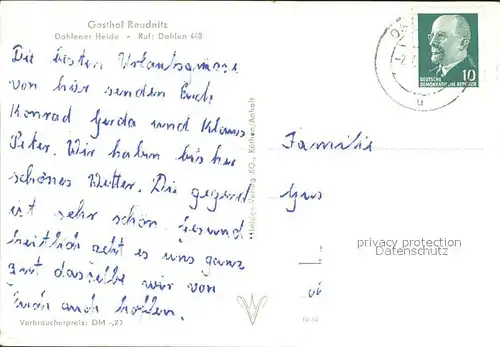 Gasthof Reudnitz
Dahlener Heide - Ruf: Dahlen 448
Die besten Urlaubsgrüsse
von hier senden Euch
Konrad Gerda und Klaus
Peter. Wir haben bis her
schönes Wetter. Die gegend
ist sehr schön. Gesund
heitlich geht es uns ganz
gut dasselbe wir von
Euch auch hoffen.
Verbraucherpreis: DM -,23
KG., Köthen/Anhalt
10
DEUTSCHE
DEMOKRATISCHE REPUBLIK
u
Familie
privacy protection
Datenschutz